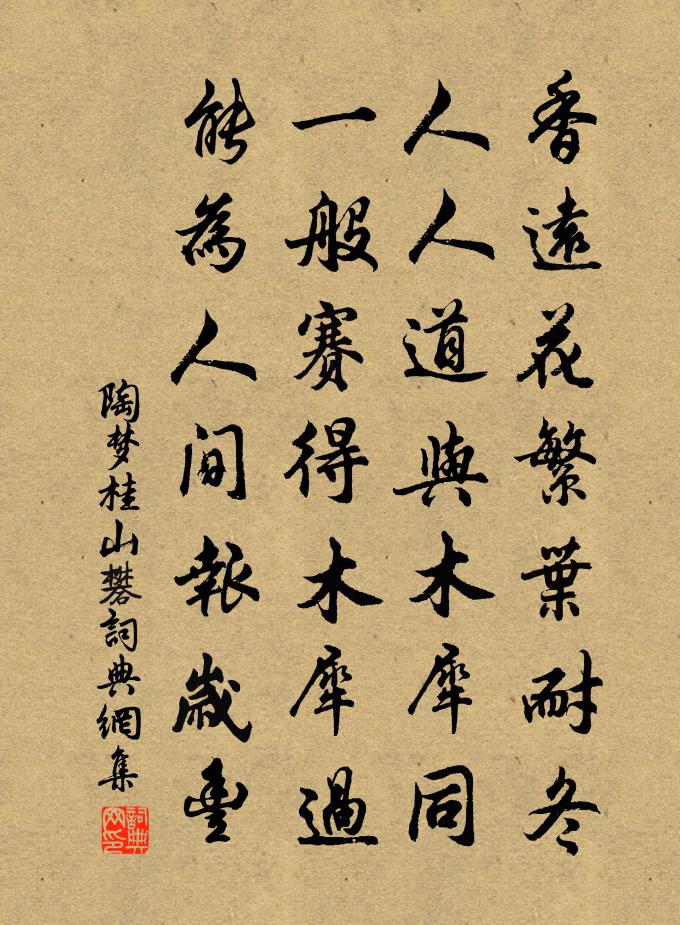 香遠花繁葉耐冬
人人道與木犀同
一般賽得木犀過
能為人間報歲豐
陶梦桂山礬詞典網集
詞典网印